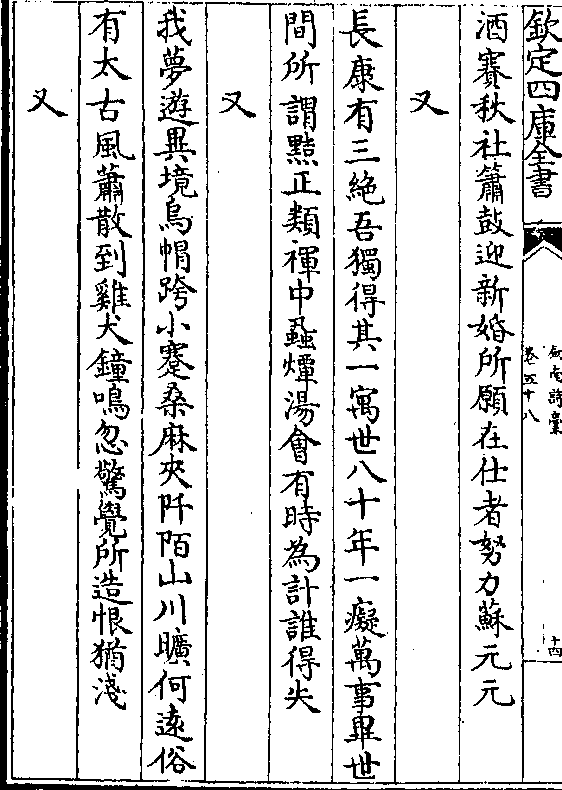 欽定四庫全書
劍南詩稾
卷五十八
十四
酒賽秋社簫鼓迎新婚所願在仕者努力蘇元元
又
長康有三絶吾獨得其一寓世八十年一癡萬事畢世
間所謂黠正類褌中蝨燂湯會有時為計誰得失
又
我夢遊異境烏帽跨小蹇桑麻夾阡陌山川曠何逺俗
有太古風蕭散到雞犬鐘鳴忽驚覺所造恨猶淺
又